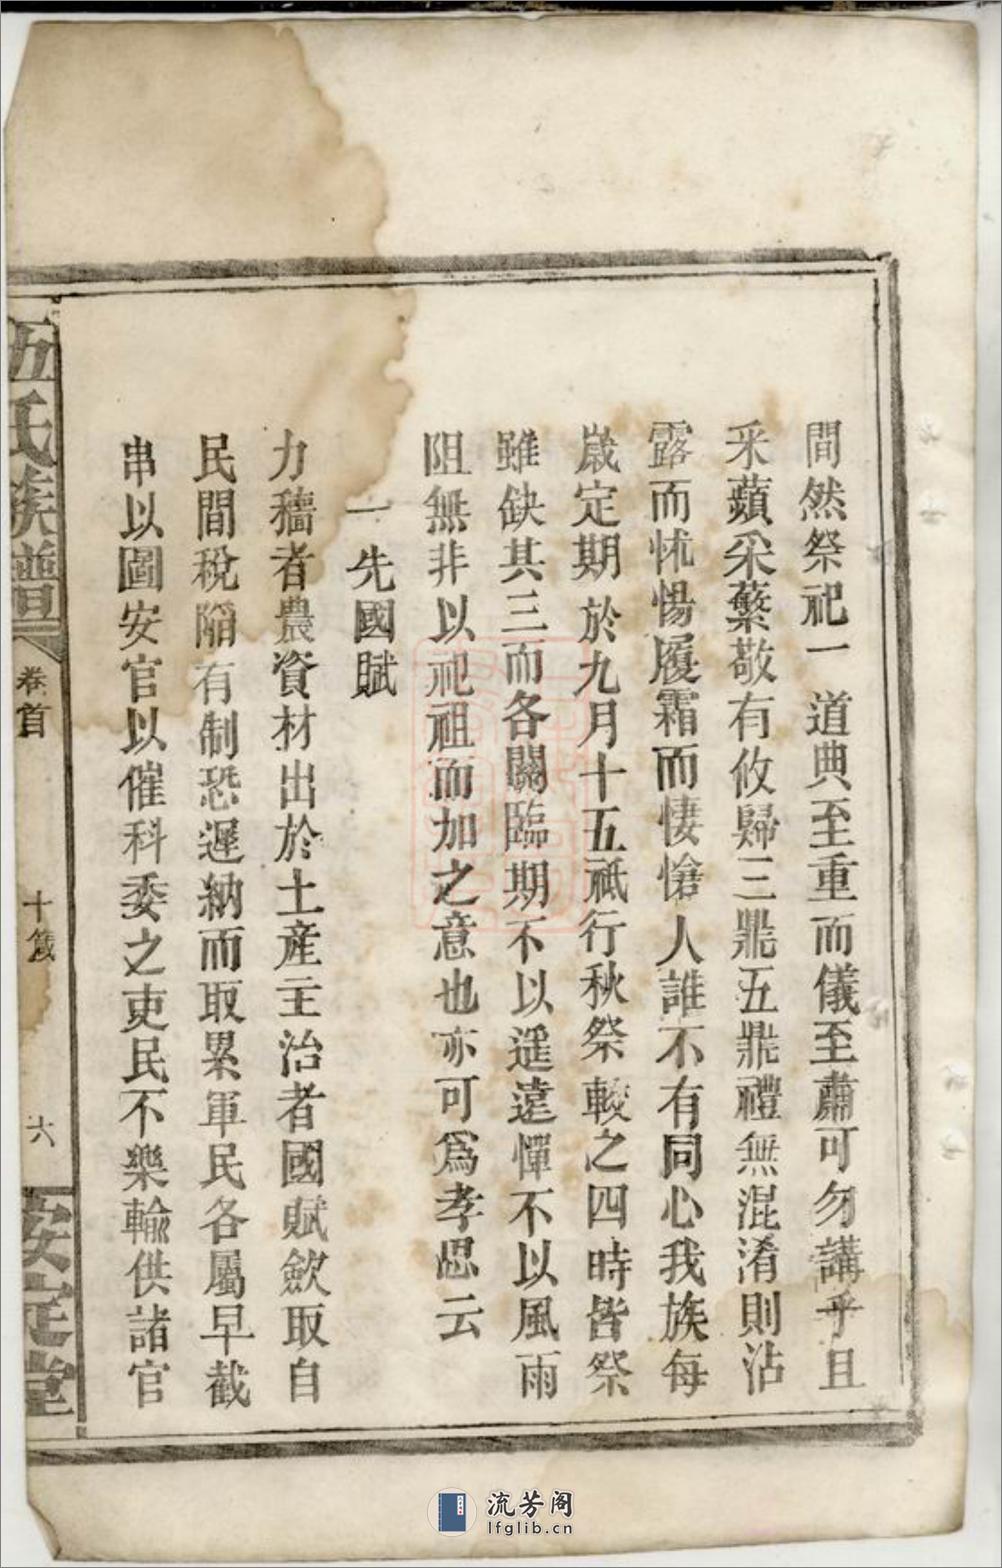 間然祭祀一道典至重而儀至肅可勿講乎且
采蘋采蘩敬有攸歸三鼎五鼎禮無混淆則沾
露而怵惕履霜而悽愴人誰不有同心我族每
歲定期於九月十五祗行秋祭較之四時皆祭
雖缺其三而各關臨期不以遥遠憚不以風雨
阻無非以祀祖而加之意也亦可爲孝思云
一先國賦
力穡者農資材出於土産主治者國賦歛取自
民間稅餉有制恐遲納而取累軍民各屬早截
串以圖安官以催科委之吏民不樂輸供諸官
伍氏族譜
卷首
十箴
六
安定堂
流芳阁
lfglib.cn